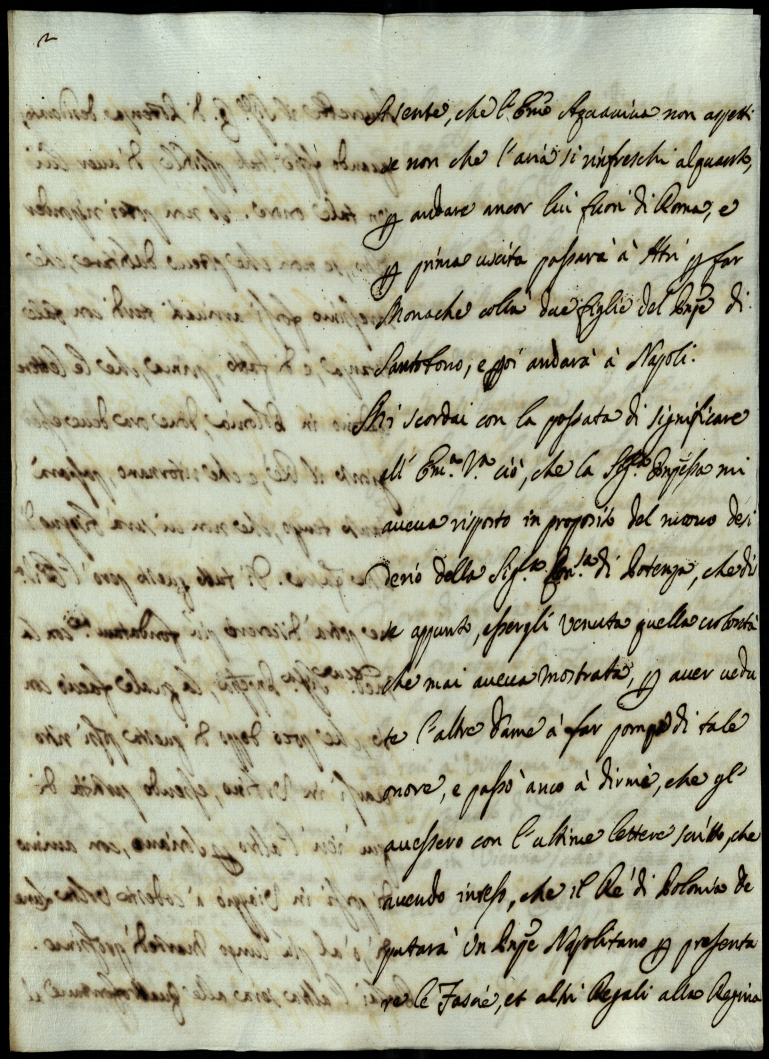 2
Si sente, che l'Em̃o Aquaviva non aspetti
se non che l'aria si rinfreschi alquanto,
ꝑ andare ancor lui fuori di Roma, e
ꝑ prima uscita passarà à Atri ꝑ far
Monache colla due figlie del Pnp̃e di
Santobono, e poi andarà à Napoli.
Mi scordai con la passata di significare
all' Em.ª V.ª ciò, che la Sig.ª Pnp̃essa mi
aveva risposto in proposito del nuovo desi
derio della Sig.ª di Potenza, che dis
se appunto, essergli venuta quella volontà
che mai aveva mostrata, ꝑ aver vedu
te l'altre Dame à far pompa di tale
onore, e passò anco à dirmè, che gl'
avessero con l'ultime lettere scritto, che
avendo inteso, che il Rè di Polonia de
putarà un Pnp̃e Napolitano ꝑ presenta
re le Fascie, et altri Regali alla Regina